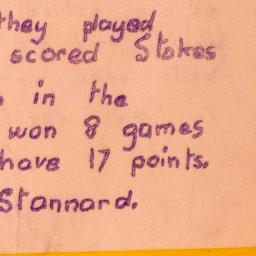 they played
scored Stokes
in the
won 8 games
have 17 points.
Stannard.